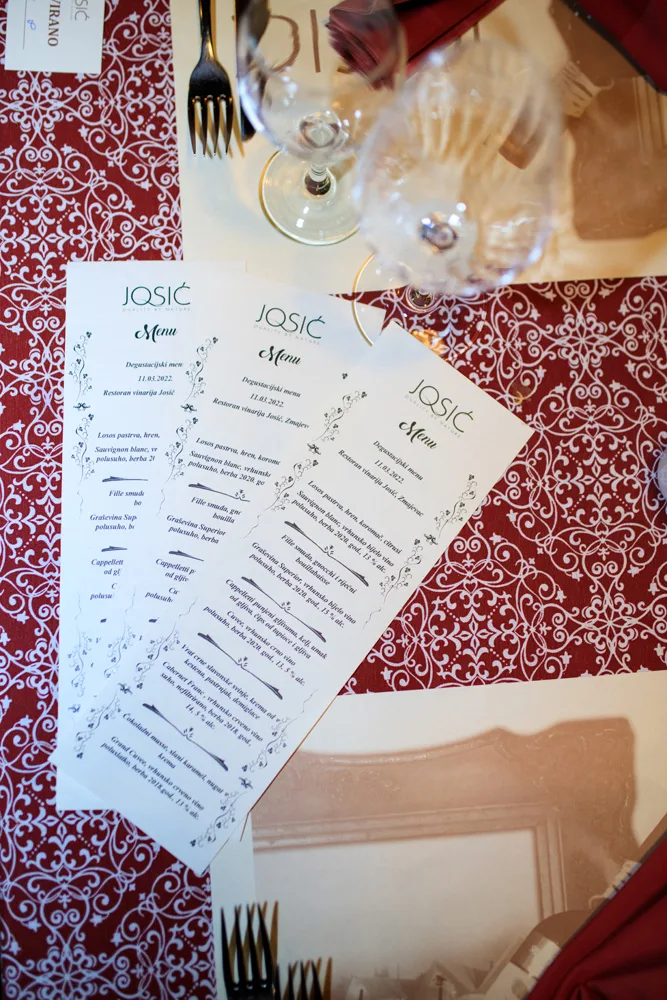 JOSIĆ
VIRANO
JOSIĆ
QUALITY BY NATURE
Menu
Degustacijski men
11.03.2022.
Restoran vinarija Josić
Losos pastrva, hren,
Sauvignon blanc, vr
polusuho, berba 2
Fille smuđ
bo
Graševina Sup
polusuho, be
Cappellett
od glj
JOSIĆ
QUALITY BY NATURE
Menu
Degustacijski menu
11.03.2022.
Restoran vinarija Josić, Zmajev
Losos pastrva, hren, koromač
Sauvignon blanc, vrhunsko
polusuho, berba 2020. go
Fille smuđa, gno
bouilla
Graševina Superior
polusuho, berba
Cappelletti p
od gljiv
JOSIĆ
QUALITY BY NATURE
Menu
Degustacijski menu
11.03.2022.
Restoran vinarija Josić, Zmajevac
Losos pastrva, hren, koromač, citrusi
Sauvignon blanc, vrhunsko bijelo vino
polusuho, berba 2020. god., 13 % alc.
Fille smuđa, gnocchi i riječni
bouillabaisse
Graševina Superior, vrhunsko bijelo vino
polusuho, berba 2020. god., 13 % alc.
Cappelletti punjeni gljivama, kelj, umak
od gljiva, čips od tapioce i gljiva
Cuvee, vrhunsko crno vino
polusuho, berba 2020. god., 13, 5 % alc.
Vrat crne slavonske svinje, krema od
kestena, pastrnjak, demiglace
Cabernet Franc, vrhunsko crveno vino
suho, nefiltrirano, berba 2018. god.,
14, 5 % alc.
Čokoladni mousse, slani karamel, nugat
krema
Grand Cuvee, vrhunsko crveno vino
poluslatko, berba 2018.god., 13 % alc.